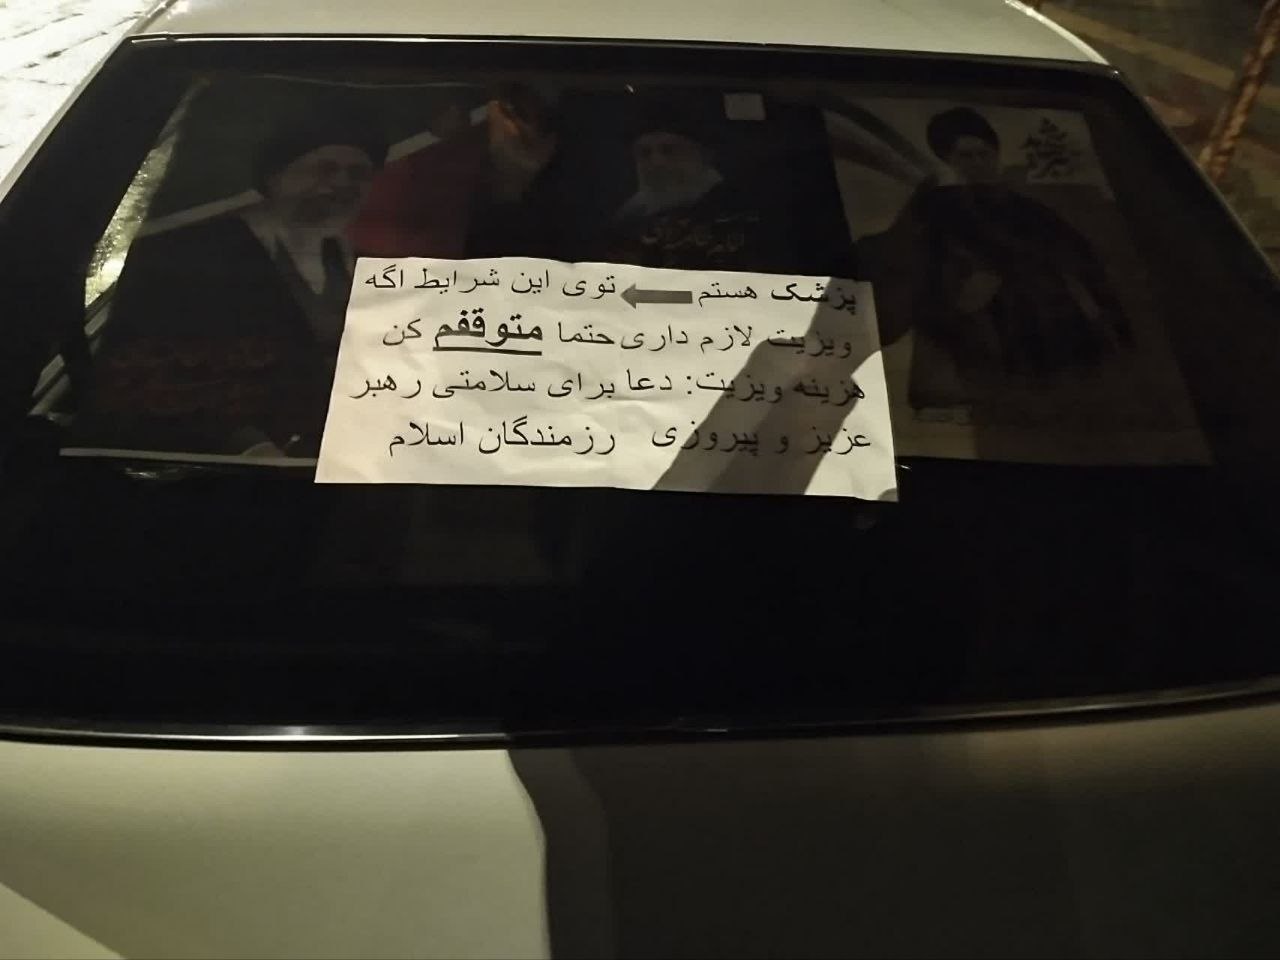 پزشک هستم ← توی این شرایط اگه
ویزیت لازم داری حتما متوقفم کن
هزینه ویزیت: دعا برای سلامتی رهبر
عزیز و پیروزی رزمندگان اسلام